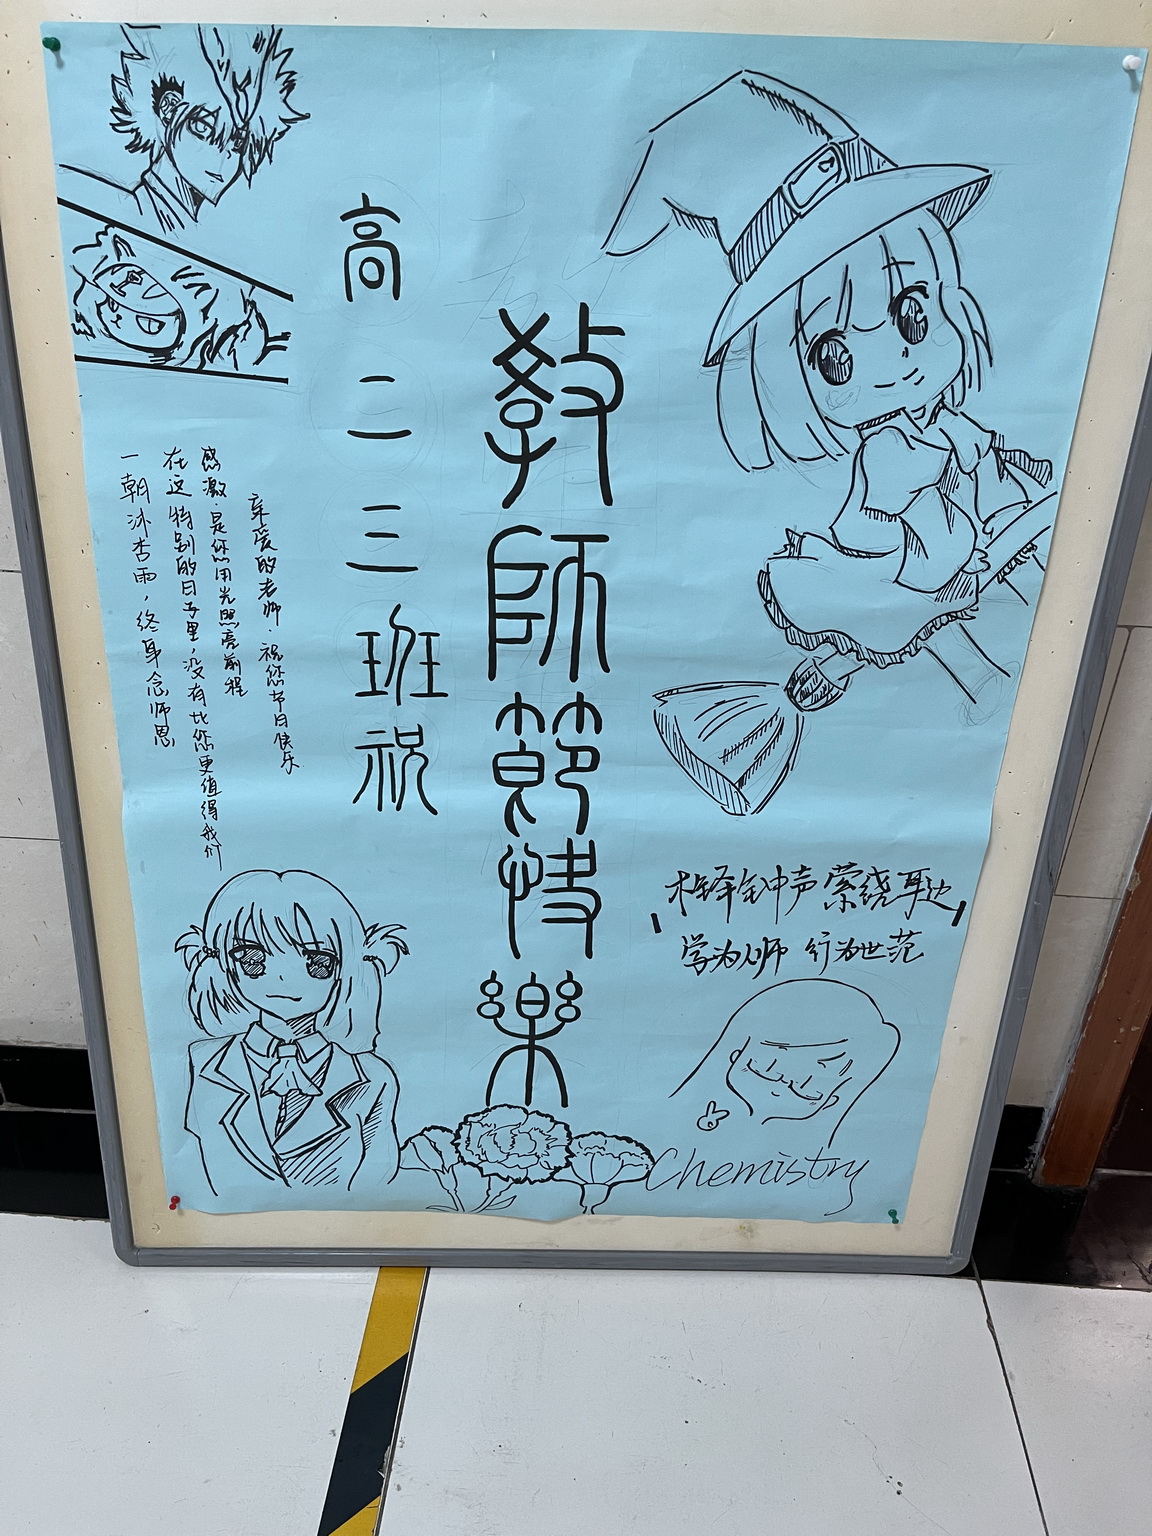 教師節快樂
高二三班祝
亲爱的老师，祝您节日快乐
感激，是您用光照亮前程
在这特别的日子里，没有比您更值得我们
一朝沐杏雨，终身念师恩
木铎钟声萦绕耳边
学为人师 行为世范
Chemistry